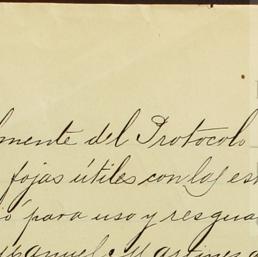 mente del Protocolo
fojas útiles con las es
ió para uso y resgua
Manuel Martines